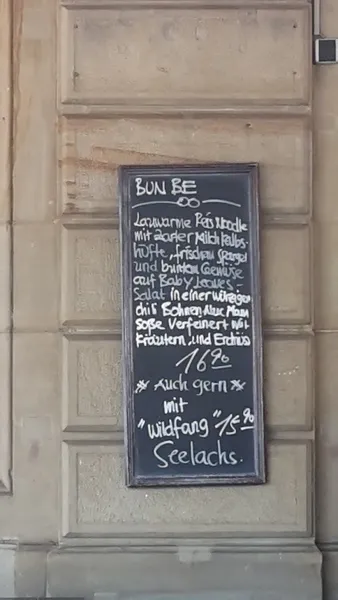 BUN BE
Lauwarme Reis Noodle
mit zarter Milch Kalbs-
hüfte, frischem Spargel
und buntem Gemüse
auf Baby Leaves-
Salat in einer würzigen
chili Bohnen Nuoc Mam
Soße Verfeinert mit
Kräutern und Erdnüs
16 90
Auch gern
mit
"Wildfang" 15 90
Seelachs.